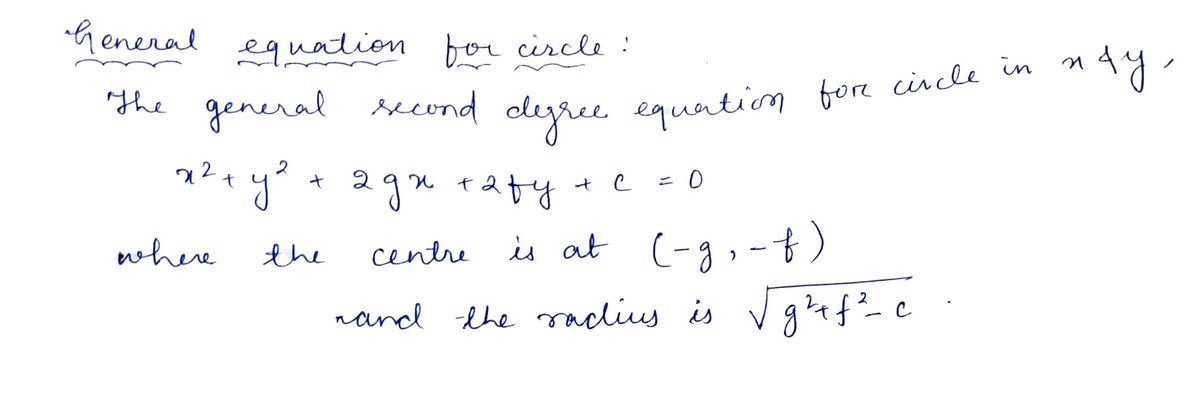 General equation for circle :
The general second degree equation for circle in x & y,
x² + y² + 2gx + 2fy + c = 0
where the centre is at (-g, -f)
and the radius is √g²+f²-c .